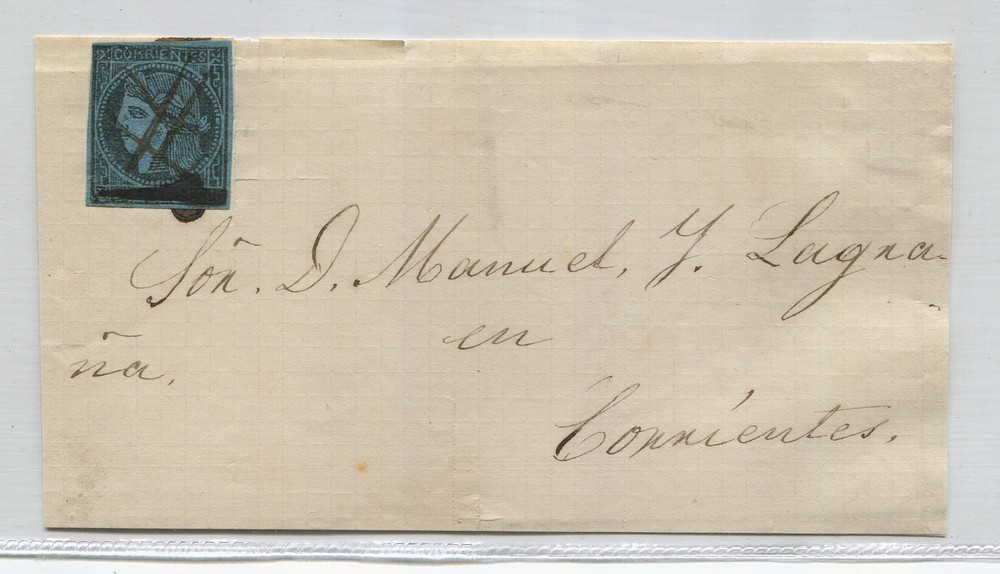 CORRIENTES
Sõn. D. Manuel, J. Lagra-
en
ña.
Corrientes.